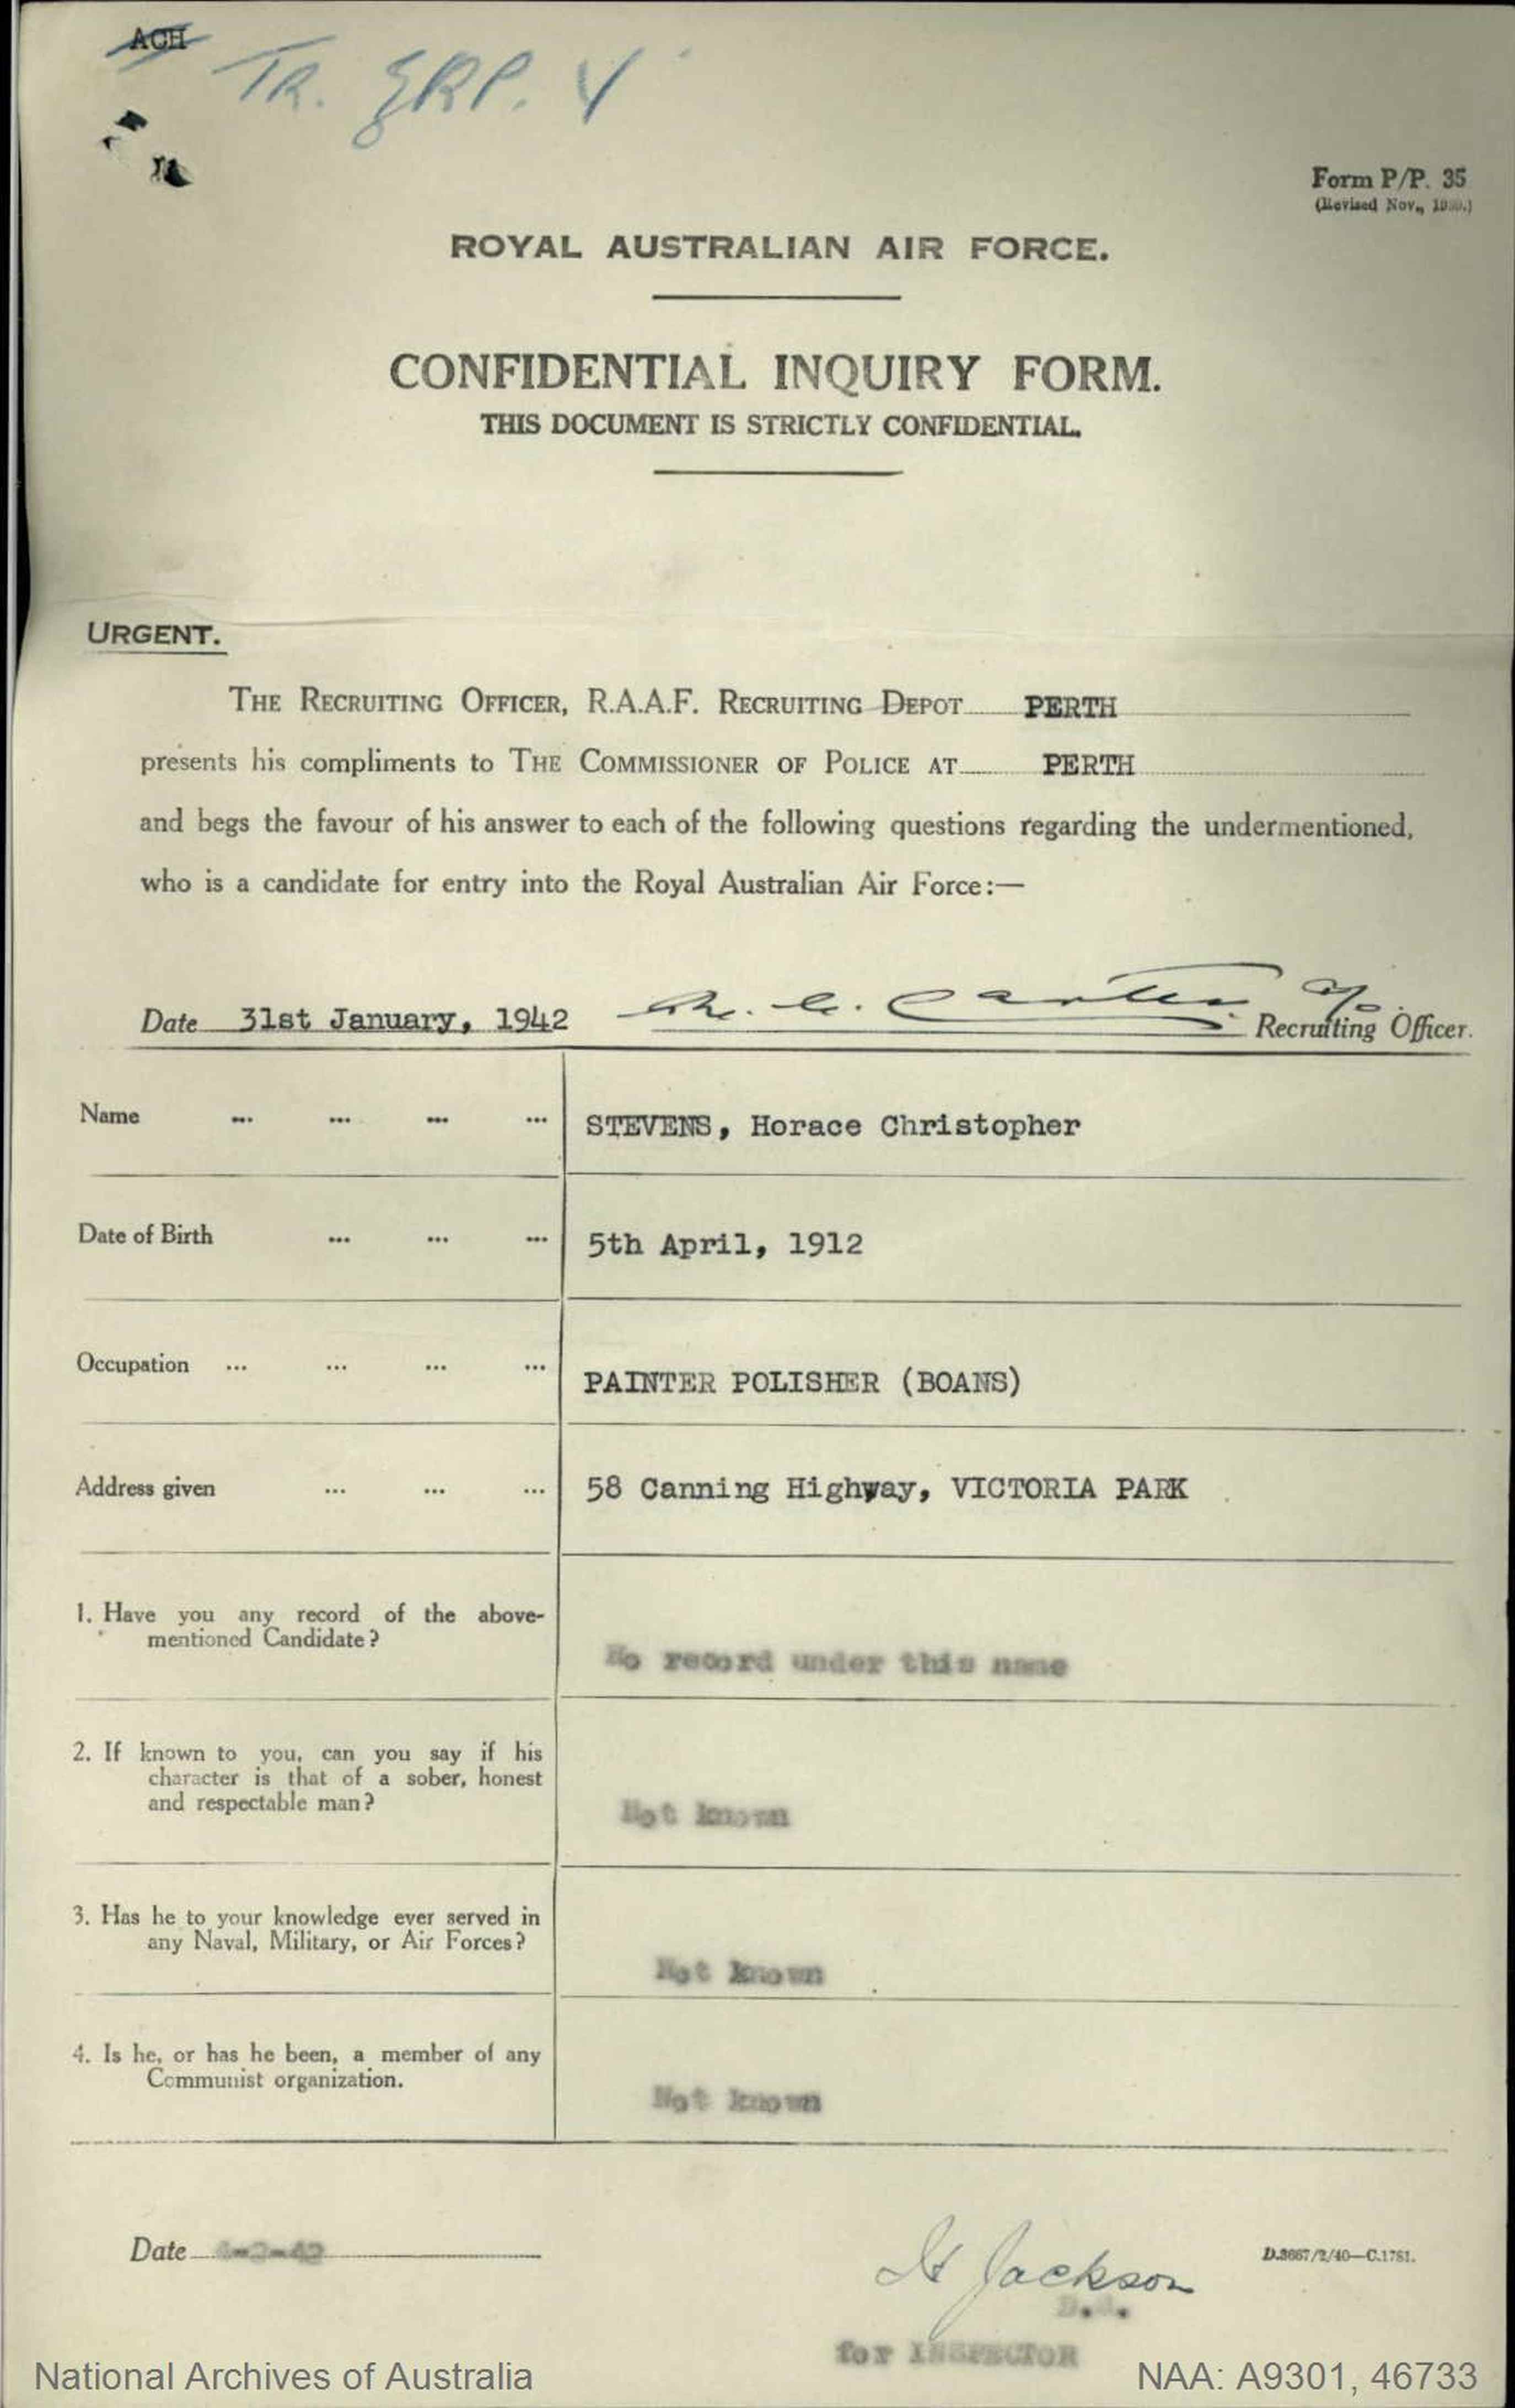 ACH
TR. GRP. V
Form P/P. 35
(Revised Nov.,
ROYAL AUSTRALIAN AIR FORCE.
CONFIDENTIAL INQUIRY FORM.
THIS DOCUMENT IS STRICTLY CONFIDENTIAL.
URGENT.
THE RECRUITING OFFICER, R.A.A.F. RECRUITING DEPOT PERTH
presents his compliments to THE COMMISSIONER OF POLICE AT PERTH
and begs the favour of his answer to each of the following questions regarding the undermentioned,
who is a candidate for entry into the Royal Australian Air Force:—
Date 31st January, 1942 Recruiting Officer.
Name ... ... ... ... STEVENS, Horace Christopher
Date of Birth ... ... ... 5th April, 1912
Occupation ... ... ... ... PAINTER POLISHER (BOANS)
Address given ... ... ... 58 Canning Highway, VICTORIA PARK
1. Have you any record of the above-
mentioned Candidate?
No record under this name
2. If known to you, can you say if his
character is that of a sober, honest
and respectable man?
Not known
3. Has he to your knowledge ever served in
any Naval, Military, or Air Forces?
Not known
4. Is he, or has he been, a member of any
Communist organization.
Not known
Date
Jackson
D.3667/2/40—C.1781.
for INSPECTOR
National Archives of Australia
NAA: A9301, 46733